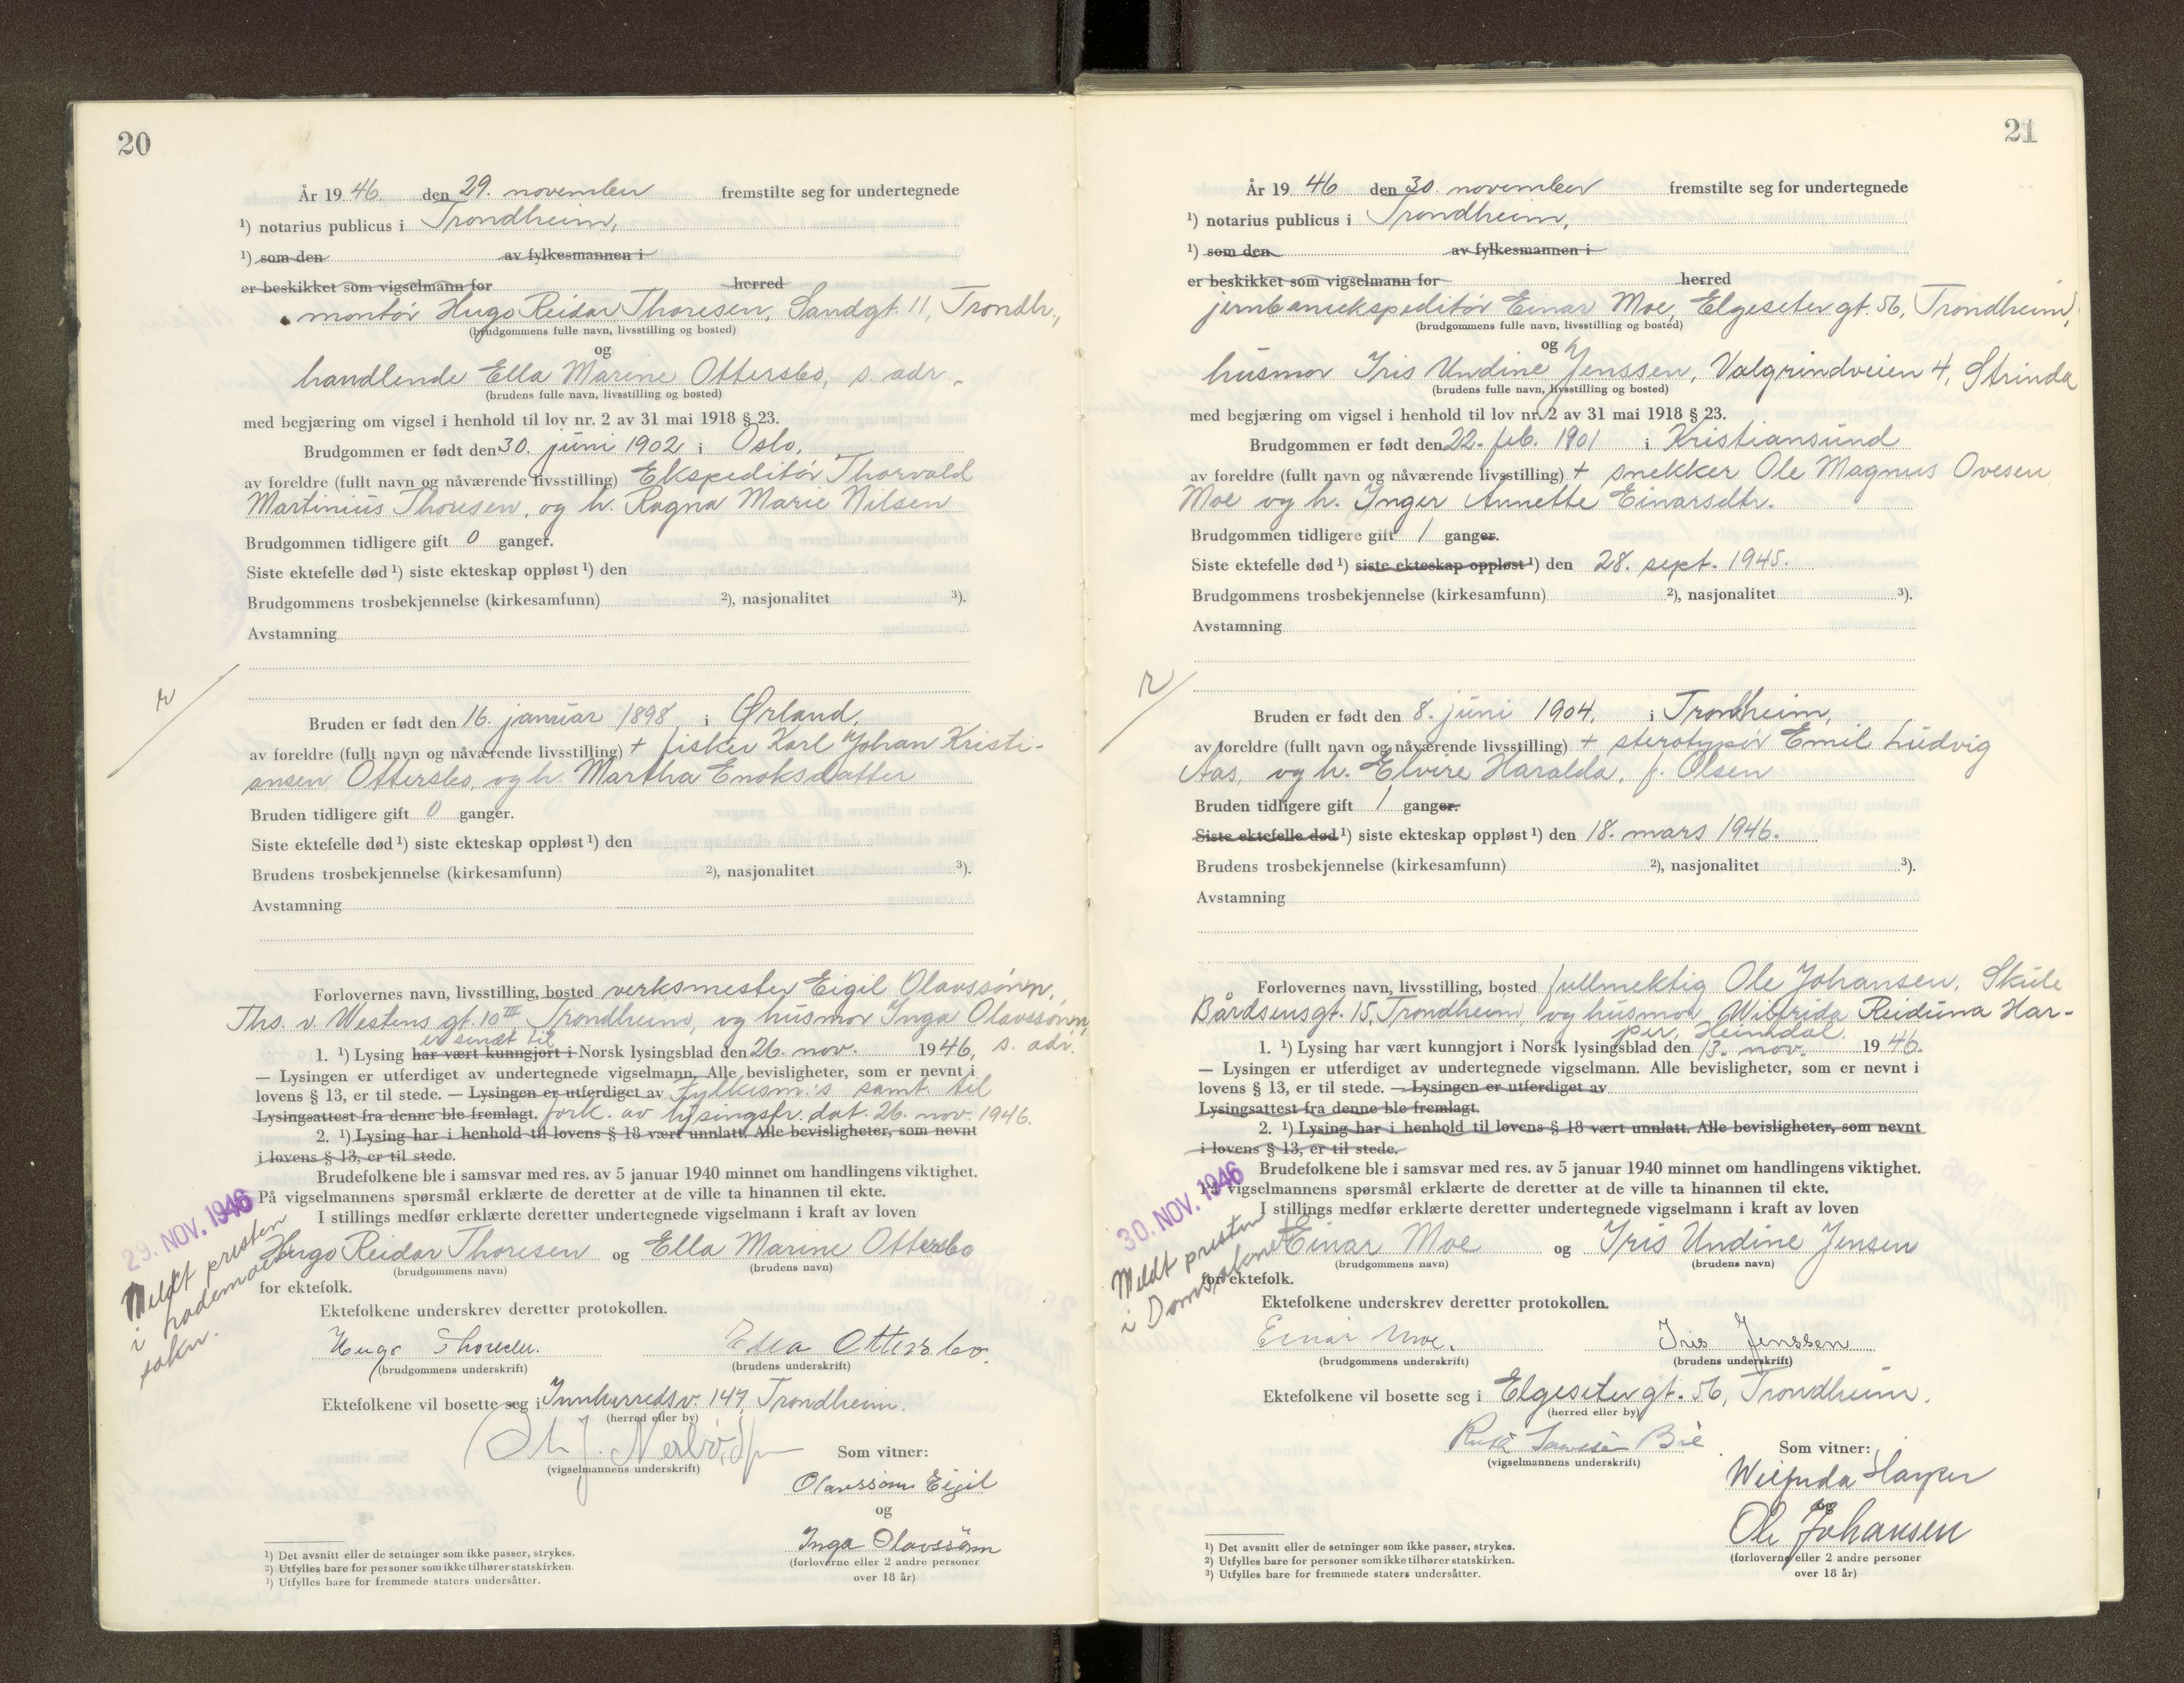 20
År 19 46. den 29. november fremstilte seg for undertegnede
¹) notarius publicus i Trondheim,
¹) som den av fylkesmannen i
er beskikket som vigselmann for herred
montör Hugo Reidar Thoresen, Sandgt. 11, Trondh.,
(brudgommens fulle navn, livsstilling og bosted)
og
handlende Ella Marine Ottersbo, s. adr.
(brudens fulle navn, livsstilling og bosted)
med begjæring om vigsel i henhold til lov nr. 2 av 31 mai 1918 § 23.
Brudgommen er født den 30. juni 1902 i Oslo.
av foreldre (fullt navn og nåværende livsstilling) Ekspeditör Thorvald
Martinius Thoresen, og h. Ragna Marie Nilsen
Brudgommen tidligere gift 0 ganger.
Siste ektefelle død ¹) siste ekteskap oppløst ¹) den
Brudgommens trosbekjennelse (kirkesamfunn) ²), nasjonalitet ³).
Avstamning
r
Bruden er født den 16. januar 1898 i Ørland,
av foreldre (fullt navn og nåværende livsstilling) + fisker Karl Johan Kristi-
ansen Ottersbo, og h. Martha Enoksdatter
Bruden tidligere gift 0 ganger.
Siste ektefelle død ¹) siste ekteskap oppløst ¹) den
Brudens trosbekjennelse (kirkesamfunn) ²), nasjonalitet ³).
Avstamning
Forlovernes navn, livsstilling, bosted verksmester Eigil Olavssönn,
Ths. v. Westens gt. 10 III Trondheim, og husmor Inga Olavssönn,
er sendt til
1. ¹) Lysing har vært kunngjort i Norsk lysingsblad den 26. nov. 1946, s. adr.
— Lysingen er utferdiget av undertegnede vigselmann. Alle bevisligheter, som er nevnt i
lovens § 13, er til stede. — Lysingen er utferdiget av Fylkesm.'s samt. til
Lysingsattest fra denne ble fremlagt. fork. av lysingsfr. dat. 26. nov. 1946.
2. ¹) Lysing har i henhold til lovens § 18 vært unnlatt. Alle bevisligheter, som nevnt
i lovens § 13, er til stede.
Brudefolkene ble i samsvar med res. av 5 januar 1940 minnet om handlingens viktighet.
På vigselmannens spørsmål erklærte de deretter at de ville ta hinannen til ekte.
I stillings medfør erklærte deretter undertegnede vigselmann i kraft av loven
29. NOV. 1946
Meldt presten
i
sokn.
Hugo Reidar Thoresen og Ella Marine Ottersbo
(brudgommens navn) (brudens navn)
for ektefolk.
Ektefolkene underskrev deretter protokollen.
Hugo Thoresen. Ella Ottersbo.
(brudgommens underskrift) (brudens underskrift)
Ektefolkene vil bosette seg i Innherredsv. 147, Trondheim.
(herred eller by)
(vigselmannens underskrift)
Som vitner:
Olavssönn Eigil
og
Inga Olavssönn
(forloverne eller 2 andre personer
over 18 år)
¹) Det avsnitt eller de setninger som ikke passer, strykes.
²) Utfylles bare for personer som ikke tilhører statskirken.
³) Utfylles bare for fremmede staters undersåtter.
21
År 19 46 den 30. november fremstilte seg for undertegnede
¹) notarius publicus i Trondheim,
¹) som den av fylkesmannen i
er beskikket som vigselmann for herred
jernbaneekspeditör Einar Moe, Elgeseter gt. 56, Trondheim,
(brudgommens fulle navn, livsstilling og bosted)
og
husmor Iris Undine Jenssen, Valgrindveien 4, Strinda
(brudens fulle navn, livsstilling og bosted)
med begjæring om vigsel i henhold til lov nr. 2 av 31 mai 1918 § 23.
Brudgommen er født den 22. feb. 1901 i Kristiansund
av foreldre (fullt navn og nåværende livsstilling) + snekker Ole Magnus Ovesen
Moe og h. Inger Annette Einarsdtr.
Brudgommen tidligere gift 1 ganger.
Siste ektefelle død ¹) siste ekteskap oppløst ¹) den 28. sept. 1945.
Brudgommens trosbekjennelse (kirkesamfunn) ²), nasjonalitet ³).
Avstamning
r
Bruden er født den 8. juni 1904. i Trondheim,
av foreldre (fullt navn og nåværende livsstilling) + sterotypör Emil Ludvig
Aas, og h. Elvire Haralda, f. Olsen
Bruden tidligere gift 1 ganger.
Siste ektefelle død ¹) siste ekteskap oppløst ¹) den 18. mars 1946.
Brudens trosbekjennelse (kirkesamfunn) ²), nasjonalitet ³).
Avstamning
Forlovernes navn, livsstilling, bosted fullmektig Ole Johansen, Skule
Bårdsensgt. 15, Trondheim, og husmor Wilfrida Reiduna Har-
per, Heimdal.
1. ¹) Lysing har vært kunngjort i Norsk lysingsblad den 13. nov. 1946.
— Lysingen er utferdiget av undertegnede vigselmann. Alle bevisligheter, som er nevnt i
lovens § 13, er til stede. — Lysingen er utferdiget av
Lysingsattest fra denne ble fremlagt.
2. ¹) Lysing har i henhold til lovens § 18 vært unnlatt. Alle bevisligheter, som nevnt
i lovens § 13, er til stede.
Brudefolkene ble i samsvar med res. av 5 januar 1940 minnet om handlingens viktighet.
På vigselmannens spørsmål erklærte de deretter at de ville ta hinannen til ekte.
I stillings medfør erklærte deretter undertegnede vigselmann i kraft av loven
30. NOV. 1946
Meldt presten
i Domsoknet
Einar Moe og Iris Undine Jensen
(brudgommens navn) (brudens navn)
for ektefolk.
Ektefolkene underskrev deretter protokollen.
Einar Moe. Iris Jenssen
(brudgommens underskrift) (brudens underskrift)
Ektefolkene vil bosette seg i Elgeseter gt. 56, Trondheim.
(herred eller by)
(vigselmannens underskrift)
Som vitner:
Wilfrida Harper
og
Ole Johansen
(forloverne eller 2 andre personer
over 18 år)
¹) Det avsnitt eller de setninger som ikke passer, strykes.
²) Utfylles bare for personer som ikke tilhører statskirken.
³) Utfylles bare for fremmede staters undersåtter.